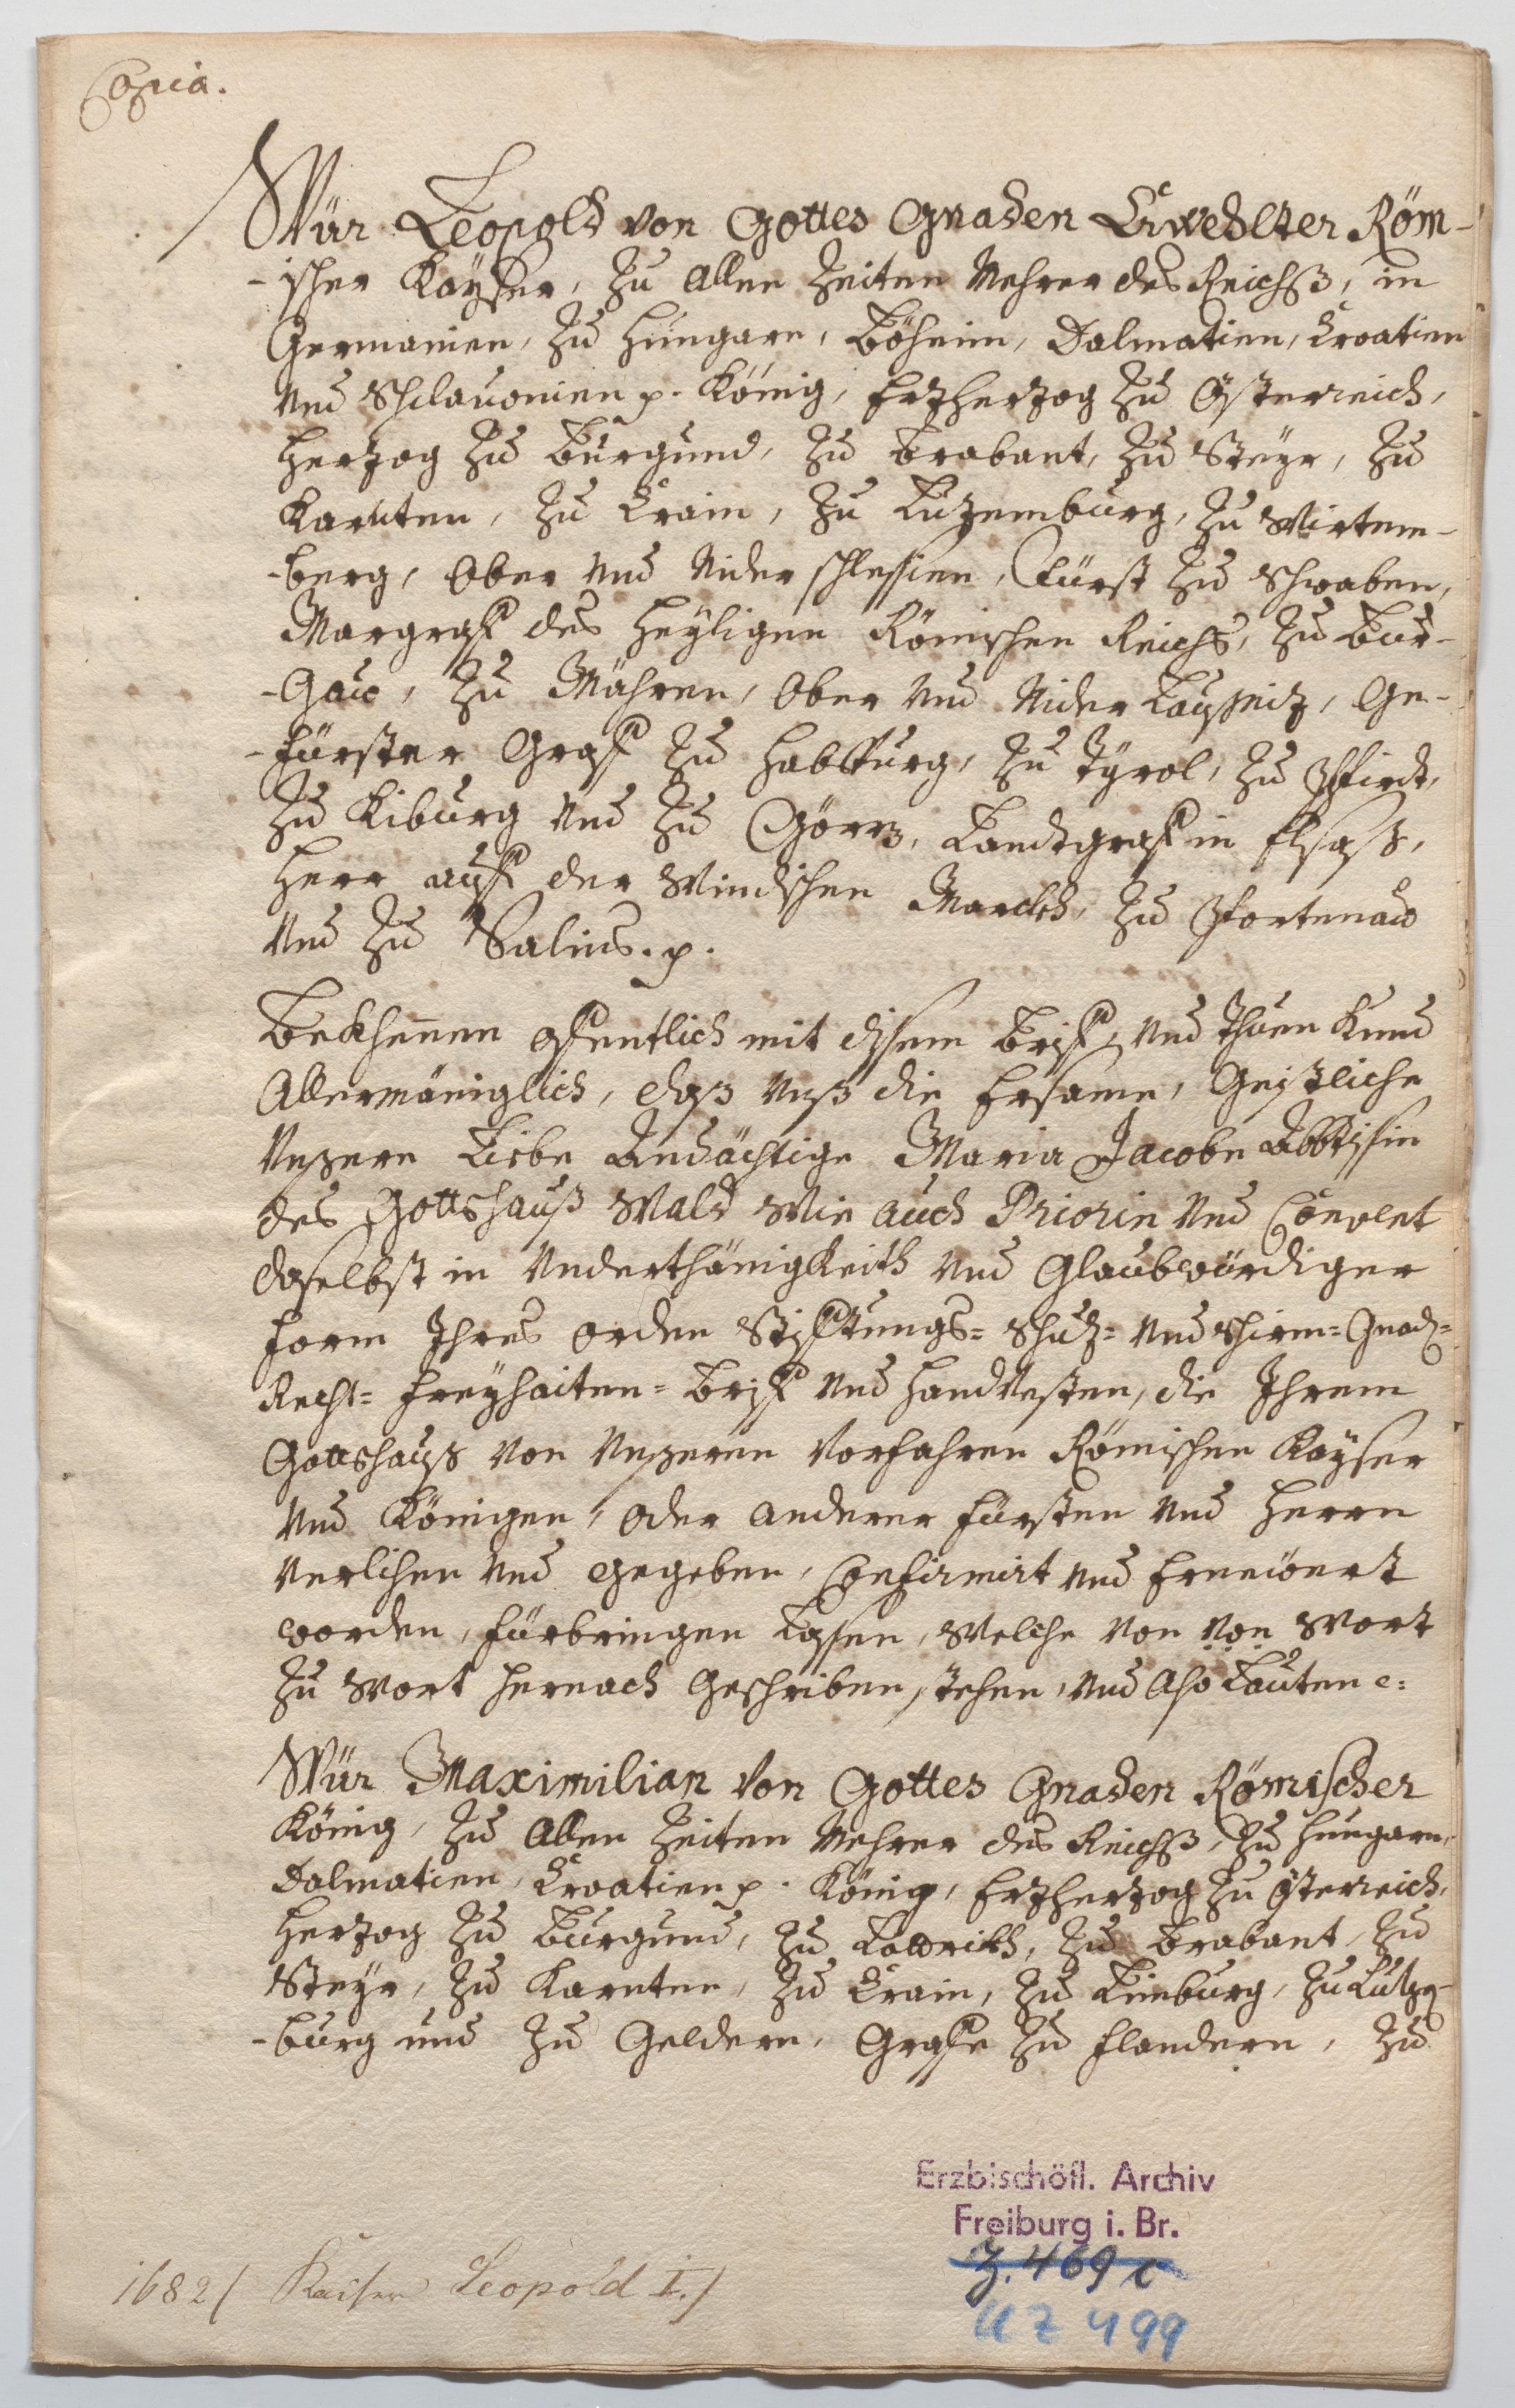 Copia.
Wür Leopold von Gottes Gnaden Erwehlter Röm-
-ischer Kayßer, zu allen Zeiten Mehrer des Reichß, in
Germanien, zu Hungarn, Böheim, Dalmatien, Croatien
und Schlauonien p. König, Ertzhertzog zu Österreich,
Hertzog zu Burgund, zu Brabant, zu Steyr, zu
Kärnten, zu Crain, zu Luzemburg, zu Wirtem-
-berg, Ober und Nider Schlesien, Fürst zu Schwaben,
Marggraff des Heyligen Römischen Reichs, zu Bur-
-Gaw, zu Mähren, Ober und Nider Laußnitz, Ge-
-fürster Graff zu Habspurg, zu Tyrol, zu Pfirdt,
zu Kiburg und zu Görtz, Landtgraff in Elsaß,
Herr auff der Windischen Marckh, zu Portenaw
und zu Salins. p.
Bekhennen offentlich mit disem Briff, und thuen kund
Allermäniglich, daß unß die Ersame, Geistliche
Unßere Liebe Andächtige Maria Jacobe Abbtissin
des Gottshauß Wald wie auch Priorin und Convent
daselbst in Underthänigkeith und Glaubwürdiger
form Ihres Orden Stifftungs= Schutz= und Schirm= Gnad=
Recht= Freyhaiten= Briff und Handvesten, die Ihrem
Gottshauß von Unßeren Vorfahren Römischen Kayser
und Königen, oder anderer Fürsten und Herrn
verlihen und gegeben, Confirmirt und Ernewert
worden, fürbringen lassen, welche von von Wort
zu Wort hernach geschriben stehen, und also lauten e:
Wür Maximilian von Gottes Gnaden Römischer
König, zu allen Zeiten Mehrer des Reichß, zu Hungarn,
Dalmatien, Croatien p. König, Ertzhertzog zu Österreich,
Hertzog zu Burgund, zu Lottrikh, zu Brabant, zu
Steyr, zu Kärnten, zu Crain, zu Limburg, zu Lutze-
-burg und zu Geldern, Graffe zu Flandern, zu
Erzbischöfl. Archiv
Freiburg i. Br.
Z. 469 c
UZ 499
1682 ( Kaiser Leopold I.)